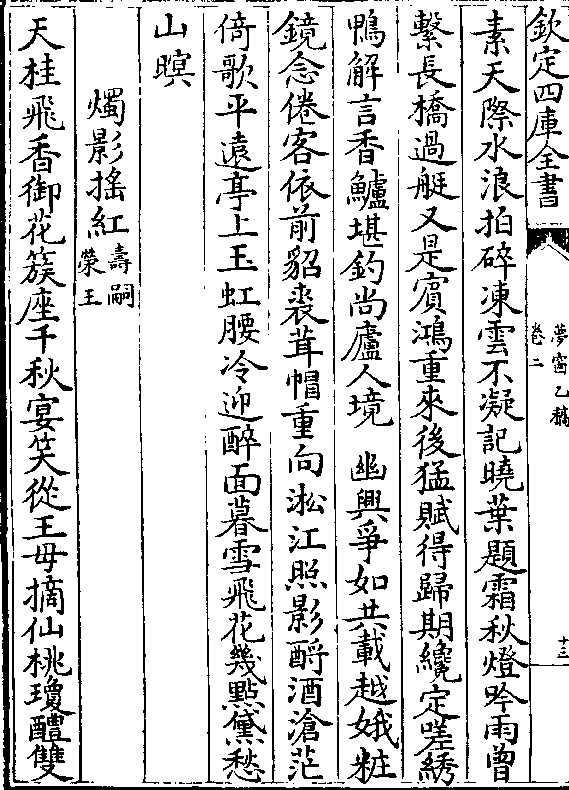 欽定四庫全書
夢窗乙稿
卷二
十三
素天際水浪拍碎凍雲不凝記曉葉題霜秋燈吟雨曾
繫長橋過艇又是賓鴻重來後猛賦得歸期纔定嗟綉
鴨解言香鱸堪釣尚廬人境　幽興爭如共載越娥粧
鏡念倦客依前貂裘茸帽重向淞江照影酹酒滄茫
倚歌平遠亭上玉虹腰冷迎醉面暮雪飛花幾點黛愁
山暝
燭影搖紅壽嗣榮王
天桂飛香御花簇座千秋宴笑從王母摘仙桃瓊醴雙